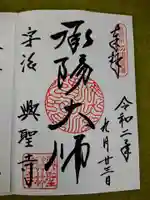 奉拝
令和二年
九月廿三日
承陽大師
宇治
興聖寺